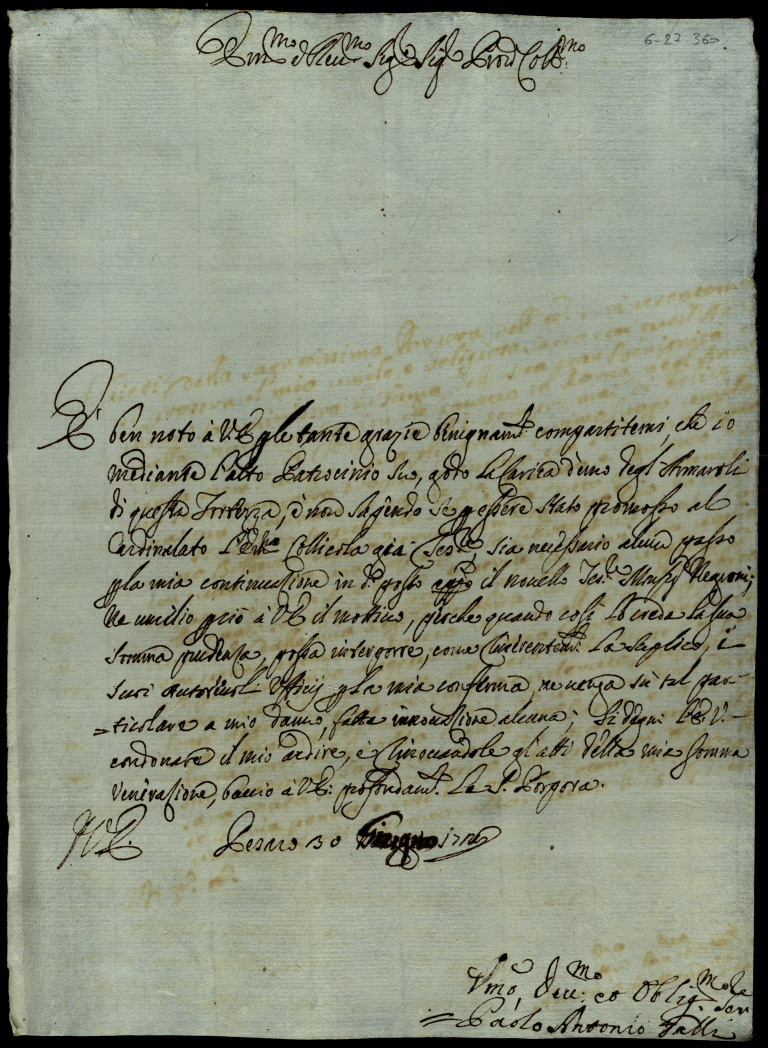 6-27 360
Em.mo e Reu.mo Sig.r Sig.r Pron Col.mo
È ben noto à VE p le tante grazie benignam.te compartitemi, che io
mediante l'alto Patrocinio Suo, godo la Carica d'uno degl'Armaroli
di questa Fortezza, e non sapendo se p essere stato promosso al
Cardinalato l'Em.o Collicola già Tes.re sia necessario alcun passo
p la mia continuazione in d.o posto appo il novello Tes.re Monsig Negroni,
ne umilio perciò à VE il motivo, perche quando così lo creda la sua
somma prudenza, possa interporre, come riverentem.te la supplico, i
suoi autorevoli Ufficij p la mia conferma, ne venga su tal par=
=ticolare a mio danno, fatta innovazione alcuna; Si degni l'E V.
condonare il mio ardire, e rinovandole gl'atti della mia somma
venerazione, baccio à VE: profondam.te la S. Porpora.
VE. Pesaro 30 Giugno
Vmo, Deu.mo ed Oblig.mo Ser.re
Paolo Antonio